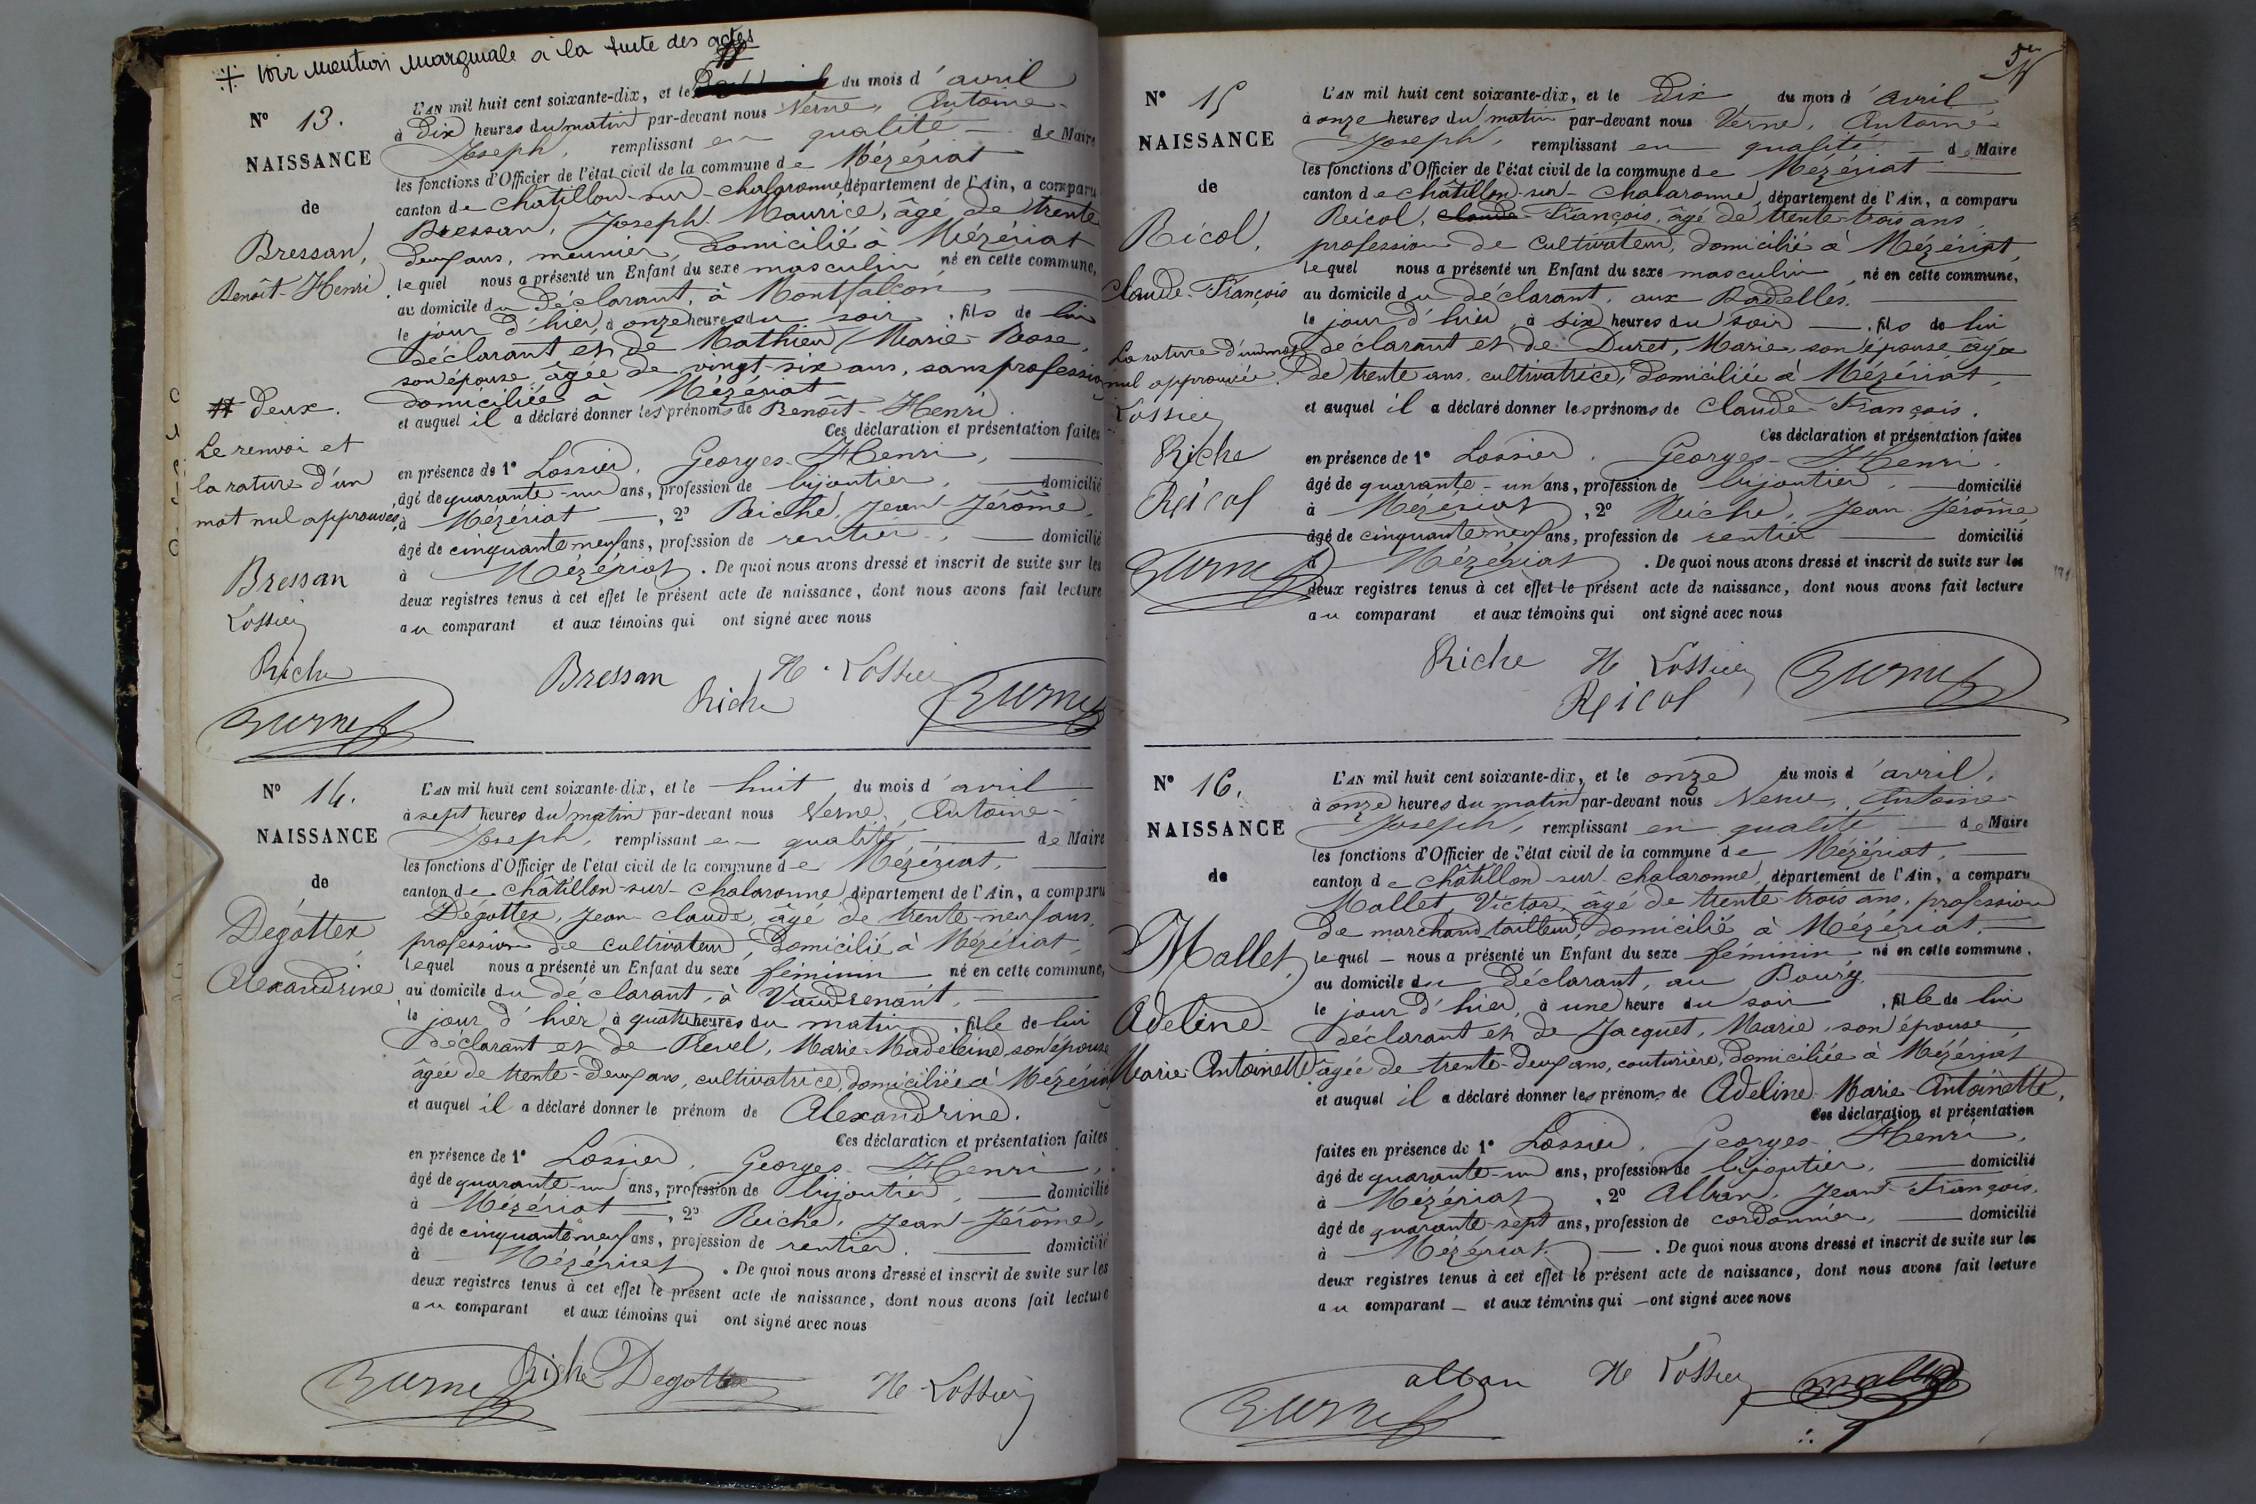 + Voir mention marginale à la suite des actes
N° 13.
NAISSANCE
de
Bressan,
Benoît-Henri
# deux.
Le renvoi et
la rature d'un
mot nul approuvés
Bressan
Lossier
Riche
Verne
L'AN mil huit cent soixante-dix, et le # du mois d'avril
à Dix heures du matin par-devant nous Verne, Antoine-
Joseph, remplissant en qualité de Maire
les fonctions d'Officier de l'état civil de la commune de Mézériat
canton de Châtillon-sur-Chalaronne, département de l'Ain, a comparu
Bressan, Joseph Maurice, âgé de trente
deux ans, meunier, domicilié à Mézériat
lequel nous a présenté un Enfant du sexe masculin né en cette commune,
au domicile du déclarant, à Montfalcon,
le jour d'hier, à onze heures du soir, fils de lui
déclarant et de Mathieu, Marie-Rose,
son épouse âgée de vingt-six ans, sans profession
domiciliée à Mézériat
et auquel il a déclaré donner les prénoms de Benoît-Henri.
Ces déclaration et présentation faites
en présence de 1° Lossier, Georges-Henri,
âgé de quarante-un ans, profession de bijoutier, domicilié
à Mézériat, 2° Riche, Jean-Jérôme,
âgé de cinquante neuf ans, profession de rentier, domicilié
à Mézériat. De quoi nous avons dressé et inscrit de suite sur les
deux registres tenus à cet effet le présent acte de naissance, dont nous avons fait lecture
au comparant et aux témoins qui ont signé avec nous
Bressan H. Lossier
Riche Verne
N° 14.
NAISSANCE
de
Dégottex
Alexandrine
L'AN mil huit cent soixante-dix, et le huit du mois d'avril
à sept heures du matin par-devant nous Verne, Antoine-
Joseph, remplissant en qualité de Maire
les fonctions d'Officier de l'état civil de la commune de Mézériat,
canton de Châtillon-sur-Chalaronne, département de l'Ain, a comparu
Dégottex, Jean-Claude, âgé de trente-neuf ans,
profession de cultivateur, domicilié à Mézériat,
lequel nous a présenté un Enfant du sexe féminin né en cette commune,
au domicile du déclarant, à Vaudrenant,
le jour d'hier, à quatre heures du matin, fille de lui
déclarant et de Revel, Marie-Madeleine, son épouse
âgée de trente-deux ans, cultivatrice, domiciliée à Mézériat
et auquel il a déclaré donner le prénom de Alexandrine.
Ces déclaration et présentation faites
en présence de 1° Lossier, Georges-Henri,
âgé de quarante-un ans, profession de bijoutier, domicilié
à Mézériat, 2° Riche, Jean-Jérôme,
âgé de cinquante neuf ans, profession de rentier, domicilié
à Mézériat. De quoi nous avons dressé et inscrit de suite sur les
deux registres tenus à cet effet le présent acte de naissance, dont nous avons fait lecture
au comparant et aux témoins qui ont signé avec nous
Verne Riche Degottex H Lossier
N° 15
NAISSANCE
de
Ricol,
Claude-François
La rature d'un mot
nul approuvée.
Lossier
Riche
Ricol
Verne
L'AN mil huit cent soixante-dix, et le Dix du mois d'avril
à onze heures du matin par-devant nous Verne, Antoine-
Joseph, remplissant en qualité de Maire
les fonctions d'Officier de l'état civil de la commune de Mézériat
canton de Châtillon-sur-Chalaronne, département de l'Ain, a comparu
Ricol, Claude François, âgé de trente-trois ans,
profession de cultivateur, domicilié à Mézériat,
lequel nous a présenté un Enfant du sexe masculin né en cette commune,
au domicile du déclarant, aux Radelles.
le jour d'hier, à six heures du soir, fils de lui
déclarant et de Duret, Marie, son épouse, âgée
de trente ans, cultivatrice, domiciliée à Mézériat,
et auquel il a déclaré donner les prénoms de Claude-François.
Ces déclaration et présentation faites
en présence de 1° Lossier, Georges-Henri,
âgé de quarante-un ans, profession de bijoutier, domicilié
à Mézériat, 2° Riche, Jean-Jérôme,
âgé de cinquante neuf ans, profession de rentier domicilié
à Mézériat. De quoi nous avons dressé et inscrit de suite sur les
deux registres tenus à cet effet le présent acte de naissance, dont nous avons fait lecture
au comparant et aux témoins qui ont signé avec nous
Riche H Lossier Verne
Ricol
N° 16.
NAISSANCE
de
Mallet,
Adeline-
Marie-Antoinette
L'AN mil huit cent soixante-dix, et le onze du mois d'avril,
à onze heures du matin par-devant nous Verne, Antoine-
Joseph, remplissant en qualité de Maire
les fonctions d'Officier de l'état civil de la commune de Mézériat,
canton de Châtillon-sur-Chalaronne, département de l'Ain, a comparu
Mallet, Victor, âgé de trente-trois ans, profession
de marchand tailleur, domicilié à Mézériat,
lequel nous a présenté un Enfant du sexe féminin né en cette commune,
au domicile du déclarant, au Bourg,
le jour d'hier, à une heure du soir, fille de lui
déclarant et de Jacquet, Marie, son épouse,
âgée de trente-deux ans, couturière, domiciliée à Mézériat
et auquel il a déclaré donner les prénoms de Adeline-Marie-Antoinette,
Ces déclaration et présentation
faites en présence de 1° Lossier, Georges-Henri,
âgé de quarante-un ans, profession de bijoutier, domicilié
à Mézériat, 2° Alban, Jean-François,
âgé de quarante-sept ans, profession de cordonnier, domicilié
à Mézériat. De quoi nous avons dressé et inscrit de suite sur les
deux registres tenus à cet effet le présent acte de naissance, dont nous avons fait lecture
au comparant et aux témoins qui ont signé avec nous
Verne alban H Lossier mallet